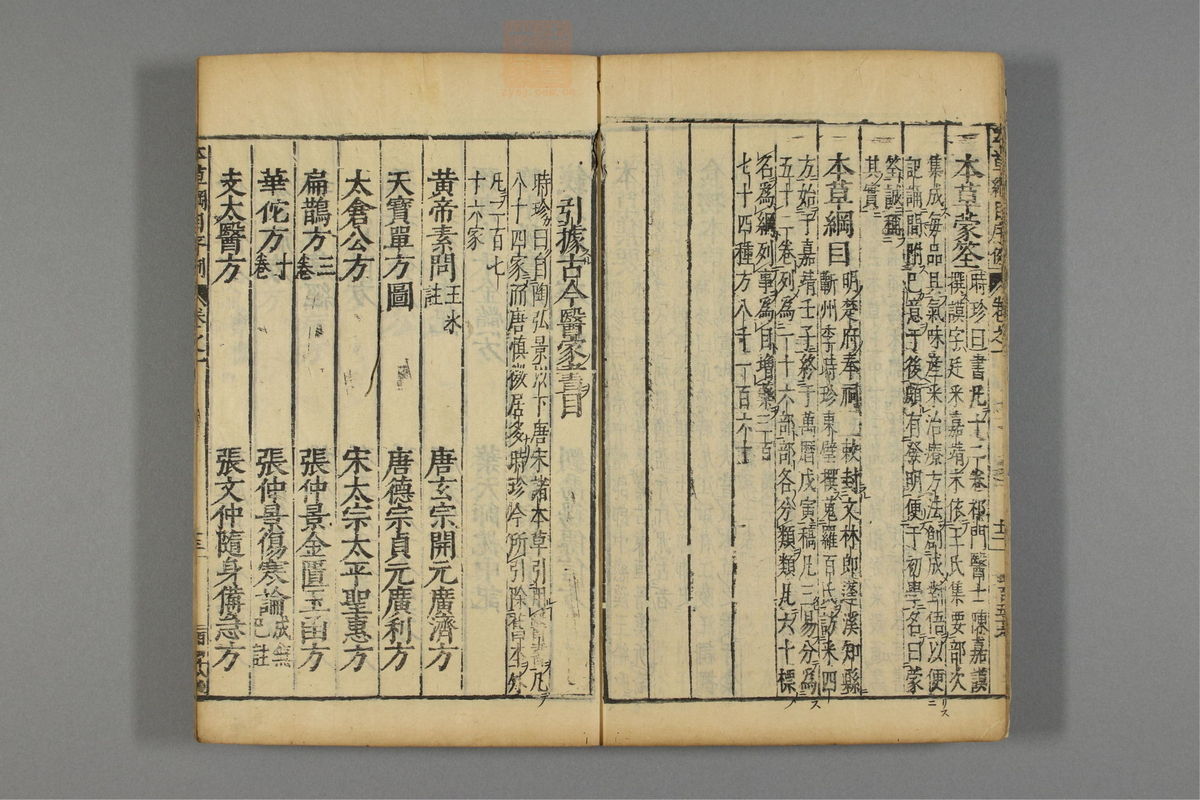 本草蒙筌 時珍曰書凡十二卷祁門醫士陳嘉謨
撰謨字廷采嘉靖末依王氏集要部次
集成每品具氣味産采治療方法創成對語以便
記誦間附己意于後頗有發明便于初學名曰蒙
筌誠稱
其實
本草綱目 明楚府奉祠敕封文林郎蓬溪知縣
蘄州李時珍東璧撰蒐羅百氏訪采四
方始于嘉靖壬子終于萬曆戊寅稿凡三易分爲
五十二卷列爲一十六部部各分類類凡六十標
名爲綱列事爲目增藥三百
七十四種方八千一百六十
引據古今醫家書目
時珍曰自陶弘景以下唐宋諸本草引用醫書凡
八十四家而唐愼微居多時珍今所引除舊本外
凡二百七
十六家
黄帝素問 王氷註
唐玄宗開元廣濟方
天寶單方圖
唐德宗貞元廣利方
太倉公方
宋太宗太平聖惠方
扁鵲方 三卷
張仲景金匱玉函方
華佗方 十卷
張仲景傷寒論 成無己註
支太醫方
張文仲隨身備急方